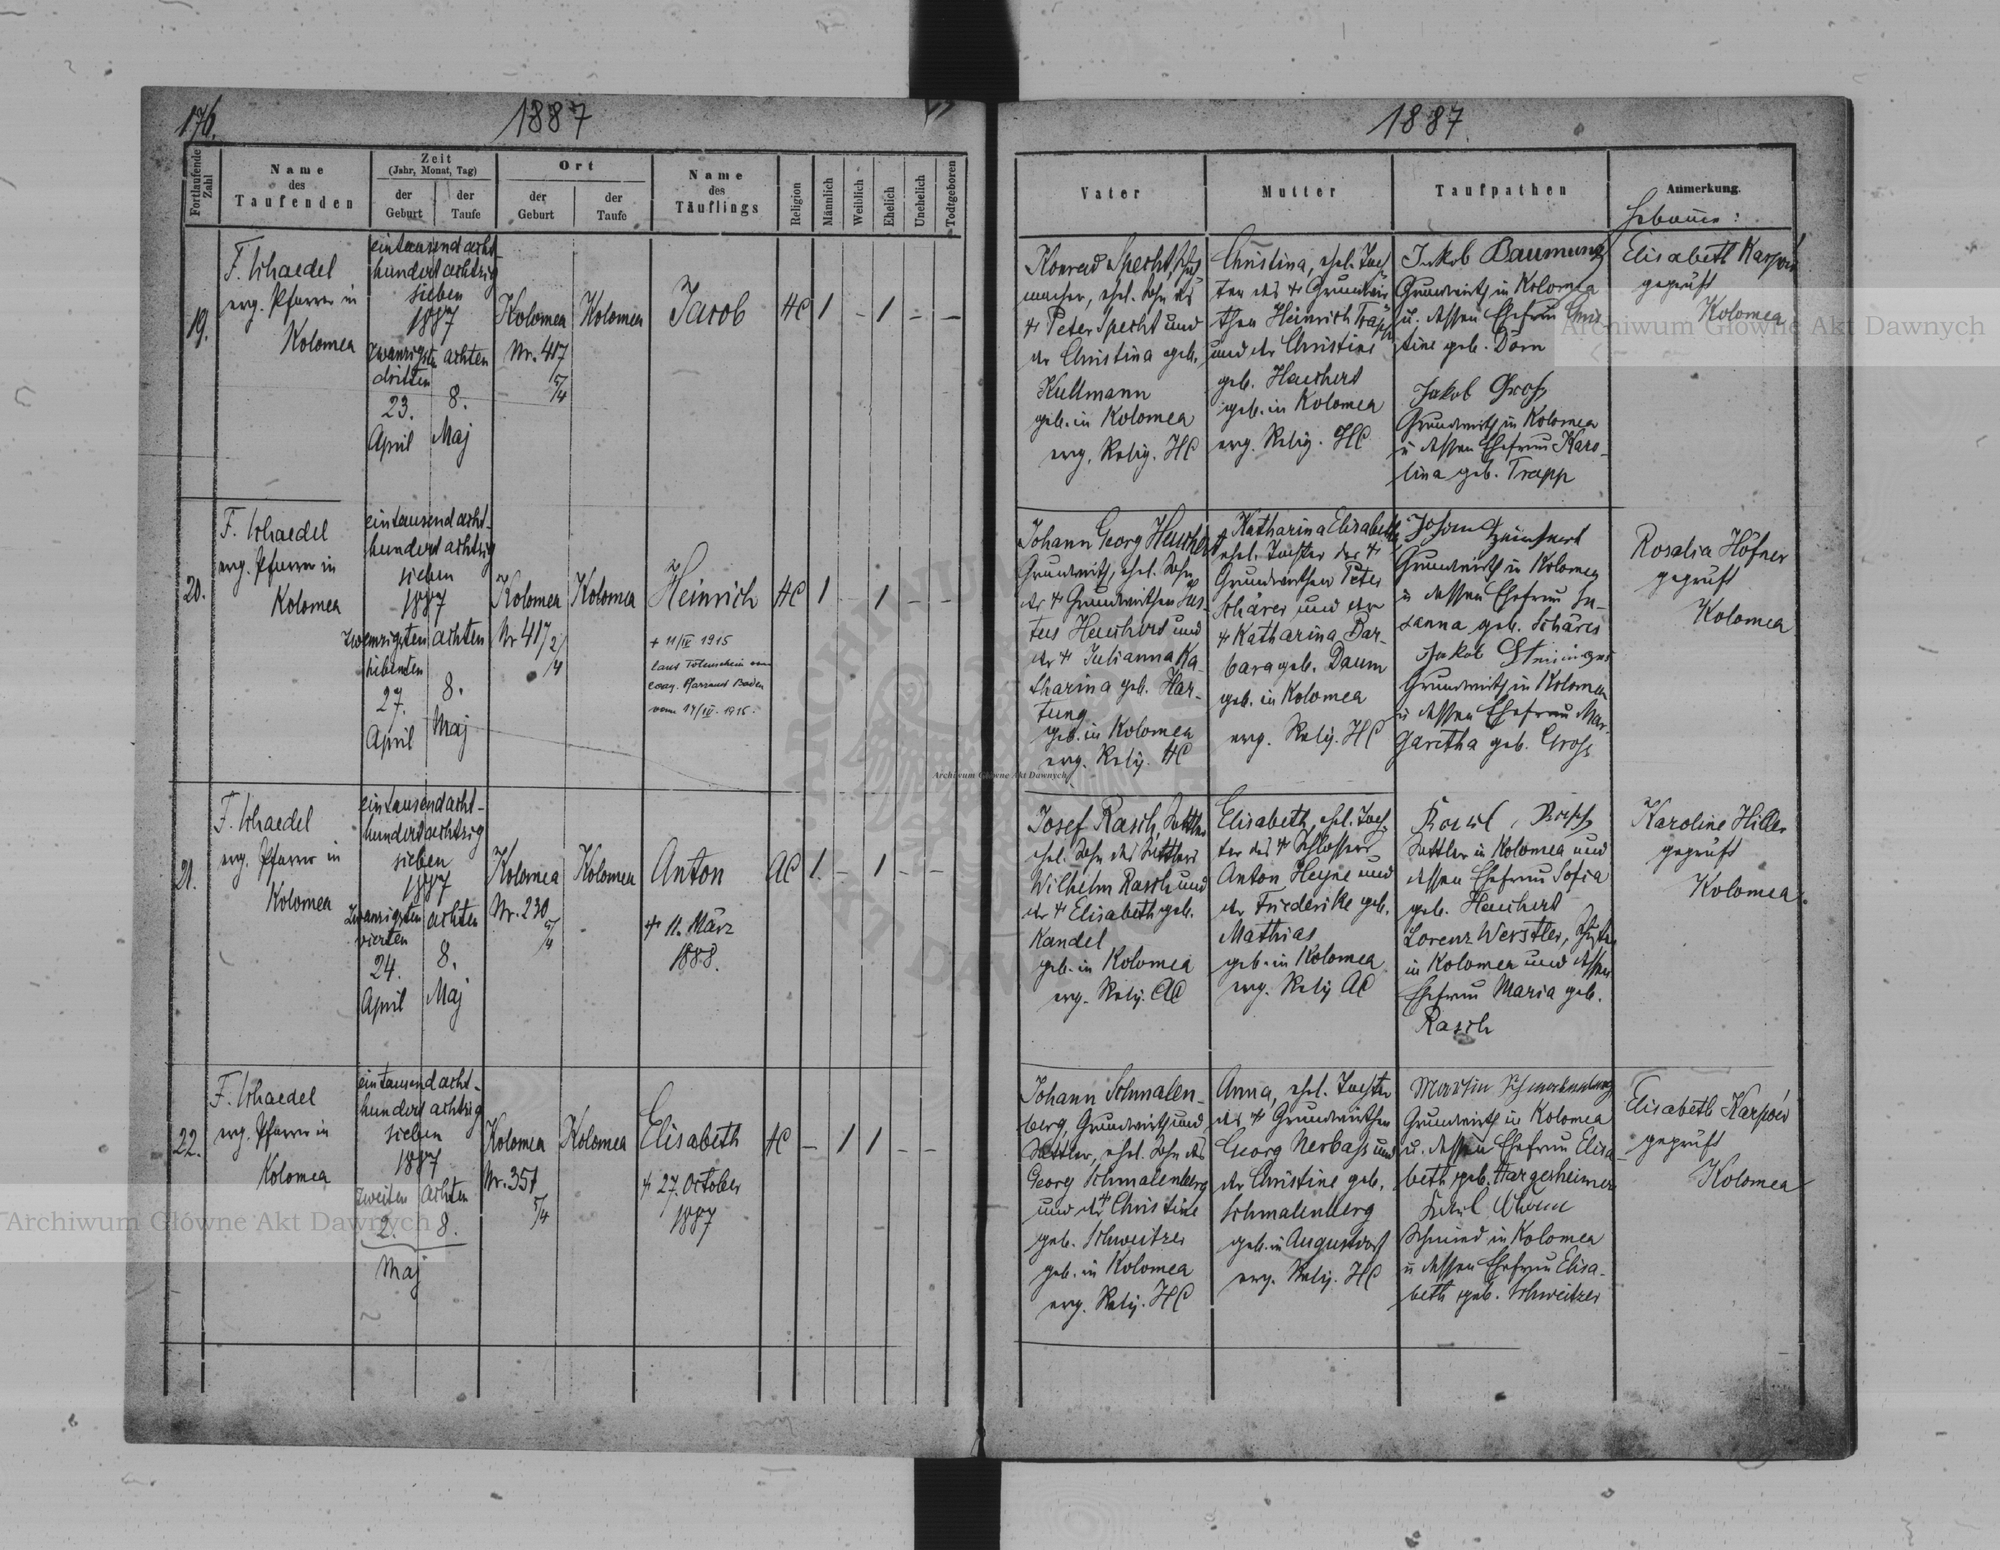 176.
1887
Fortlaufende Zahl
Name
des
Taufenden
Zeit
(Jahr, Monat, Tag)
der
Geburt
der
Taufe
Ort
der
Geburt
der
Taufe
Name
des
Täuflings
Religion
Männlich
Weiblich
Ehelich
Unehelich
Todtgeboren
1887
Vater
Mutter
Taufpathen
Anmerkung.
Hebamme:
19.
F. Schaedel
evg. Pfarrer in
Kolomea
eintausend acht-
hundert achtzig
sieben
1887
zwanzigsten
dritten
23.
April
achten
8.
Maj
Kolomea
Nr. 417
5/4
Kolomea
Jacob
HC
1
-
1
-
-
Konrad Specht,
macher, ehel. Sohn des
† Peter Specht und
der Christina geb.
Kullmann
geb. in Kolomea
evg. Relig. HC
Christina, ehel. Toch-
ter des † Grundwir-
then Heinrich Trapp
und der Christine
geb. Heuchert
geb. in Kolomea
evg. Relig. HC
Jakob Baumung
Grundwirth in Kolomea
u. dessen Ehefrau Chris-
tine geb. Dorn
Jakob Groß
Grundwirth in Kolomea
u dessen Ehefrau Karo-
lina geb. Trapp
Elisabeth Karpów
geprüft
Kolomea
20.
F. Schaedel
evg. Pfarrer in
Kolomea
eintausend acht-
hundert achtzig
sieben
1887
zwanzigsten
siebenten
27.
April
achten
8.
Maj
Kolomea
Nr 417
2/4
Kolomea
Heinrich
† 11/IV 1915
laut Totenschein vom
evang. Pfarramt Baden
vom 17/IV. 1915.
HC
1
-
1
-
-
Johann Georg Heuchert
Grundwirth, ehel. Sohn
des † Grundwirthen Jus-
tus Heuchert und
der † Julianna Ka-
tharina geb. Har-
tung
geb. in Kolomea
evg. Relig. HC
† Katharina Elisabeth
ehel. Tochter des †
Grundwirthen Peter
Schärer und der
† Katharina Bar-
bara geb. Daum
geb. in Kolomea
evg. Relig. HC
Grundwirth in Kolomea
u dessen Ehefrau Su-
sanna geb. Schärer
Jakob Steininger
Grundwirth in Kolomea
u dessen Ehefrau Mar-
garetha geb. Groß
Rosalia Höfner
geprüft
Kolomea
21.
F. Schaedel
evg. Pfarrer in
Kolomea
eintausend acht-
hundert achtzig
sieben
1887
zwanzigsten
vierten
24.
April
achten
8.
Maj
Kolomea
Nr. 230
5/4
Kolomea
Anton
† 11. März
1888.
AC
1.
-
1
-
-
Josef Rasch, Sattler
ehel. Sohn des Sattlers
Wilhelm Rasch und
der † Elisabeth geb.
Kandel
geb. in Kolomea
evg. Relig. AC
Elisabeth, ehel. Toch-
ter des † Schlossers
Anton Heyne und
der Friederike geb.
Mathias
geb. in Kolomea
evg. Relig AC
Sattler in Kolomea und
dessen Ehefrau Sofia
geb. Heuchert
Lorenz Werstler,
in Kolomea und dessen
Ehefrau Maria geb.
Rasch
Karoline Hiller
geprüft
Kolomea.
22.
F. Schaedel
evg. Pfarrer in
Kolomea
eintausend acht-
hundert achtzig
sieben
1887
zweiten
2.
achten
8.
Maj
Kolomea
Nr. 357
5/4
Kolomea
Elisabeth
† 27. October
1887
HC
-
1
1
-
-
Johann Schmalen-
berg, Grundwirth und
Sattler, ehel. Sohn des
Georg Schmalenberg
und der † Christine
geb. Schweitzer
geb. in Kolomea
evg. Relig. HC
Anna, ehel. Tochter
des † Grundwirthen
Georg Nerbaß und
der Christine geb.
Schmalenberg
geb. in Augustdorf
evg. Relig. HC
Martin Schmalenberg
Grundwirth in Kolomea
u. dessen Ehefrau Elisa-
beth geb. Hargesheimer
Schmied in Kolomea
u dessen Ehefrau Elisa-
beth geb. Schweitzer
Elisabeth Karpów
geprüft
Kolomea
Archiwum Główne Akt Dawnych
Archiwum Główne Akt Dawnych
Archiwum Główne Akt Dawnych